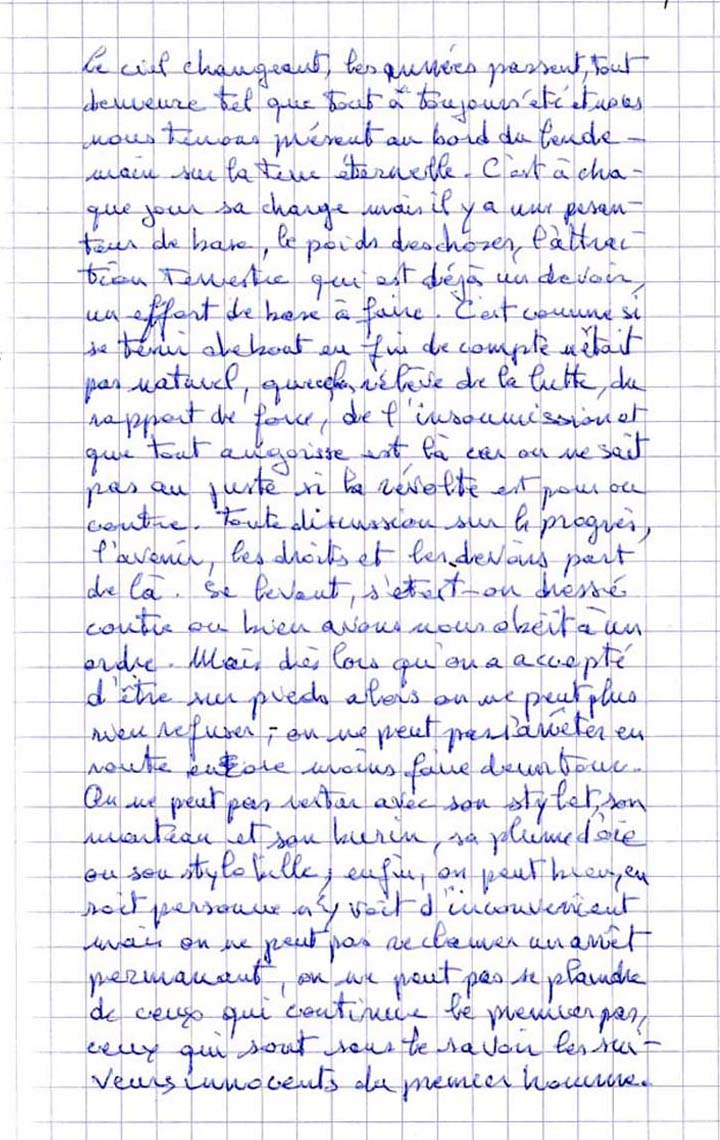 Le ciel changeant, les années passent, tout
demeure tel que tout à toujours été et nous
nous tenons présent au bord du lende-
main sur la terre éternelle. C'est à cha-
que jour sa charge mais il y a une pesan-
teur de base, le poids des choses, l'attrac
tion terrestre qui est déjà un devoir,
un effort de base à faire. C'est comme si
se tenir debout en fin de compte n'était
pas naturel, que cela relève de la lutte, du
rapport de force, de l'insoumission et
que tout angoisse est là car on ne sait
pas au juste si la révolte est pour ou
contre. Toute discussion sur le progrès,
l'avenir, les droits et les devoirs part
de là. Se levant, s'était-on dressé
contre ou bien avons nous obéit à un
ordre. Mais dès lors qu'on a accepté
d'être sur pieds alors on ne peut plus
rien refuser ; on ne peut pas s'arrêter en
route encore moins faire demi tour.
On ne peut pas rester avec son stylet, son
marteau et son burin, sa plume d'oie
ou son stylo bille ; enfin, on peut bien, en
soit personne n'y voit d'inconvenient
mais on ne peut pas reclamer un arrêt
permanant, on ne peut pas se plaindre
de ceux qui continue le premier pas,
ceux qui sont sans le savoir les sui-
veurs innocents du premier homme.